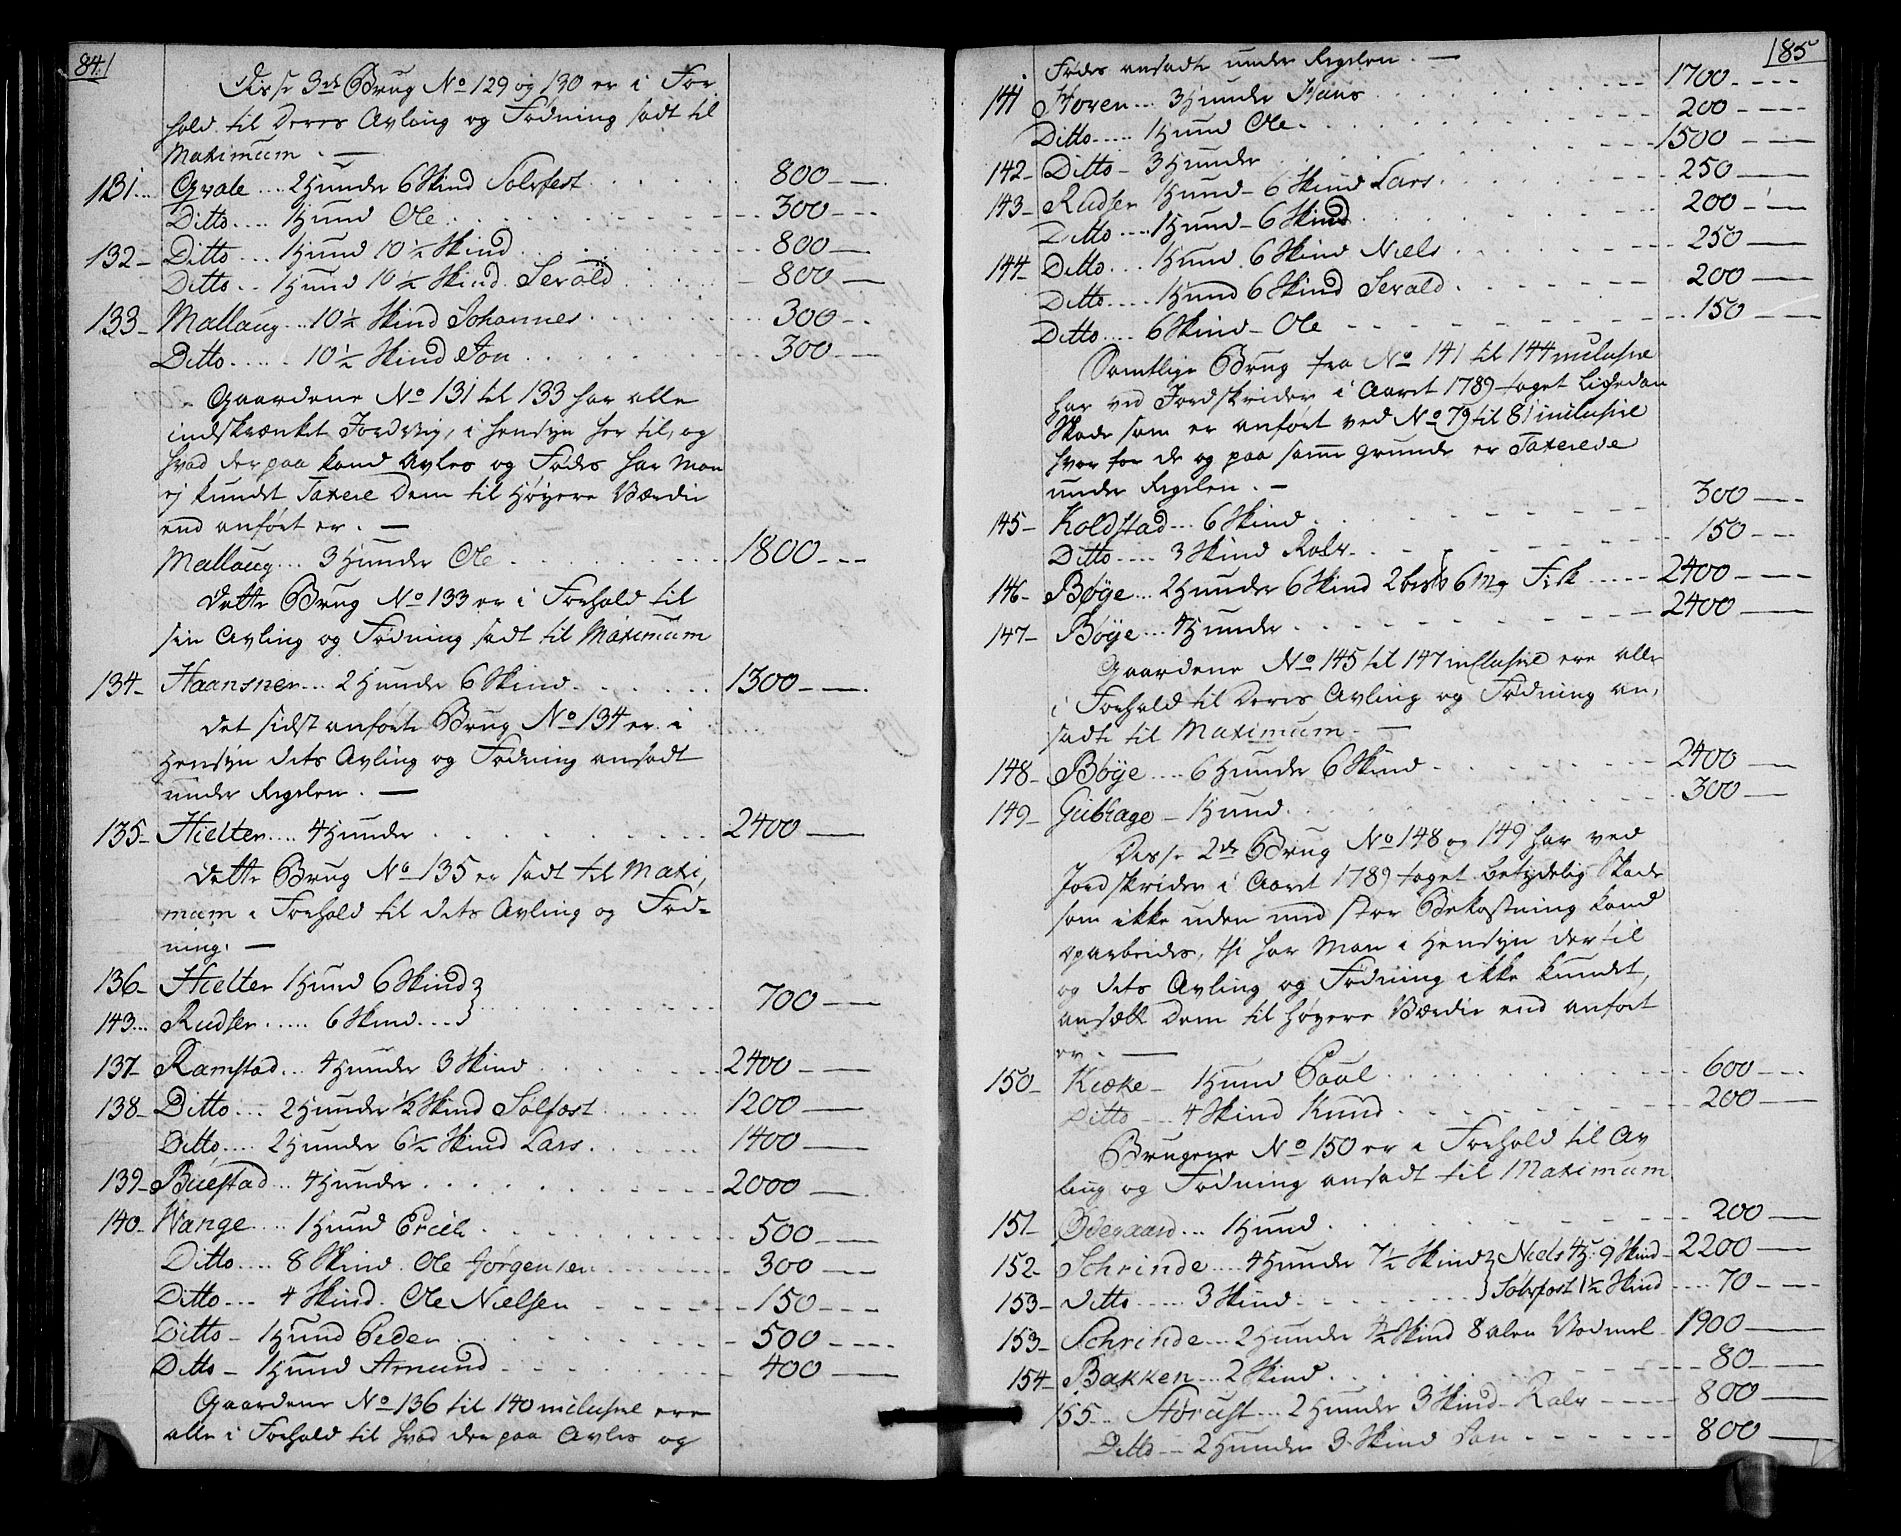 84.
Disse 3de Brug No 129 og 130 er i For
hold til deres Avling og Fødning sadt til
Maximum. —
131... Qvale .... 2 Hunder 6 Skind Solvfest 800
Ditto .... 1 Hund Ole 300
132 - Ditto .... 1 Hund 10 ½ Skind 800
Ditto .. 1 Hund 10 ½ Skind Serald 800
133 - Mallaug ... 10 ½ Skind Johannes 300
Ditto .... 10 ½ Skind Jon 300
Gaardene No 131 til 133 har alle
indskrænket Jordvey, i hensyn her til, og
hvad der paa kand Avles og Fødes har Man
ej kundet Taxere dem til høyere Værdie
end anført er. —
Mallaug ... 3 Hunder Ole 1800
Dette Brug No 133 er i Forhold til
sin Avling og Fødning sadt til Maximum
134 - Haansner ... 2 Hunder 6 Skind 1300
Det sidst anførte Brug No 134 er i
Hensyn dets Avling og Fødning ansadt
under Regelen. —
135 - Hielter .... 4 Hunder 2400
Dette Brug No 135 er sadt til Maxi,
mum i Forhold til dets Avling og Fød-
ning. —
136 - Hielter 1 Hund 6 Skind }
143 ... Rudser ...... 6 Skind .... } 700
137 - Ramstad ... 4 Hunder 3 Skind 2400
138 - Ditto .... 2 Hunder ½ Skind Solfast 1200
Ditto .... 2 Hunder 6 ½ Skind Lars 1400
139 - Buestad ... 4 Hunder 2000
140 - Wange .... 1 Hund Erich 500
Ditto .... 8 Skind. Ole Jørgensen 300
Ditto ... 4 Skind. Ole Nielsen 150
Ditto - 1 Hund Peder 500
Ditto - 1 Hund Amund 400
Gaardene No 136 til 140 inclusive ere
alle i Forhold til hvad der paa Avles og
85
Fødes ansadt under Regelen. —
141 Horen ... 3 Hunder Hans 1700
Ditto .... 1 Hund Ole 200
142 - Ditto - 3 Hunder 1500
143 - Rudser 1 Hund - 6 Skind Lars 250
Ditto .... 1 Hund - 6 Skind 200
144 - Ditto .... 1 Hund 6 Skind Niels 250
Ditto .... 1 Hund 6 Skind Serald 200
Ditto .... 6 Skind - Ole 150
Samtlige Brug fra No 141 til 144 inclusive
har ved Jordskrider i Aaret 1789 taget ligedan
Skade som er anført ved No 79 til 81 inclusive
hvor for de og paa samme grunde er Taxerede
under Regelen. —
145 - Koldstad ... 6 Skind 300
Ditto .... 3 Skind Rolv 150
146 - Bøye ... 2 Hunder 6 Skind 6 Mg Fisk 2400
147 - Bøye ... 4 Hunder 2400
Gaardene No 145 til 147 inclusive ere alle
i Forhold til deres Avling og Fødning an,
sadte til Maximum. —
148 - Bøye .... 6 Hunder 6 Skind 2400
149 - Gubhage - 1 Hund 300
Disse 2de Brug No 148 og 149 har ved
Jordskrider i Aaret 1789 taget betydelig Skade
som ikke uden med stor Bekostning kand
oparbeides, thi har Man i Hensyn der til
og dets Avling og Fødning ikke kundet,
ansætte dem til høyere Værdie end anført
er. —
150 - Kiøke - 1 Hund Poul 600
Ditto ... 4 Skind Knud 200
Brugene No 150 er i Forhold til Av
ling og Fødning ansadt til Maximum
151 - Ødegaard ... 1 Hund 200
152 - Schrinde .... 4 Hunder 7 ½ Skind } Niels 4 H: 9 Skind 2200
153 - Ditto .... 3 Skind } Solvfost 1 ½ Skind 70
153 - Schrinde ... 2 Hunder ½ Skind 8 alen Vadmel 1900
154 - Bakken ... 2 Skind 80
155 .. Storust ... 2 Hunder 3 Skind Rolv 800
Ditto - 2 Hunder 3 Skind Jon 800